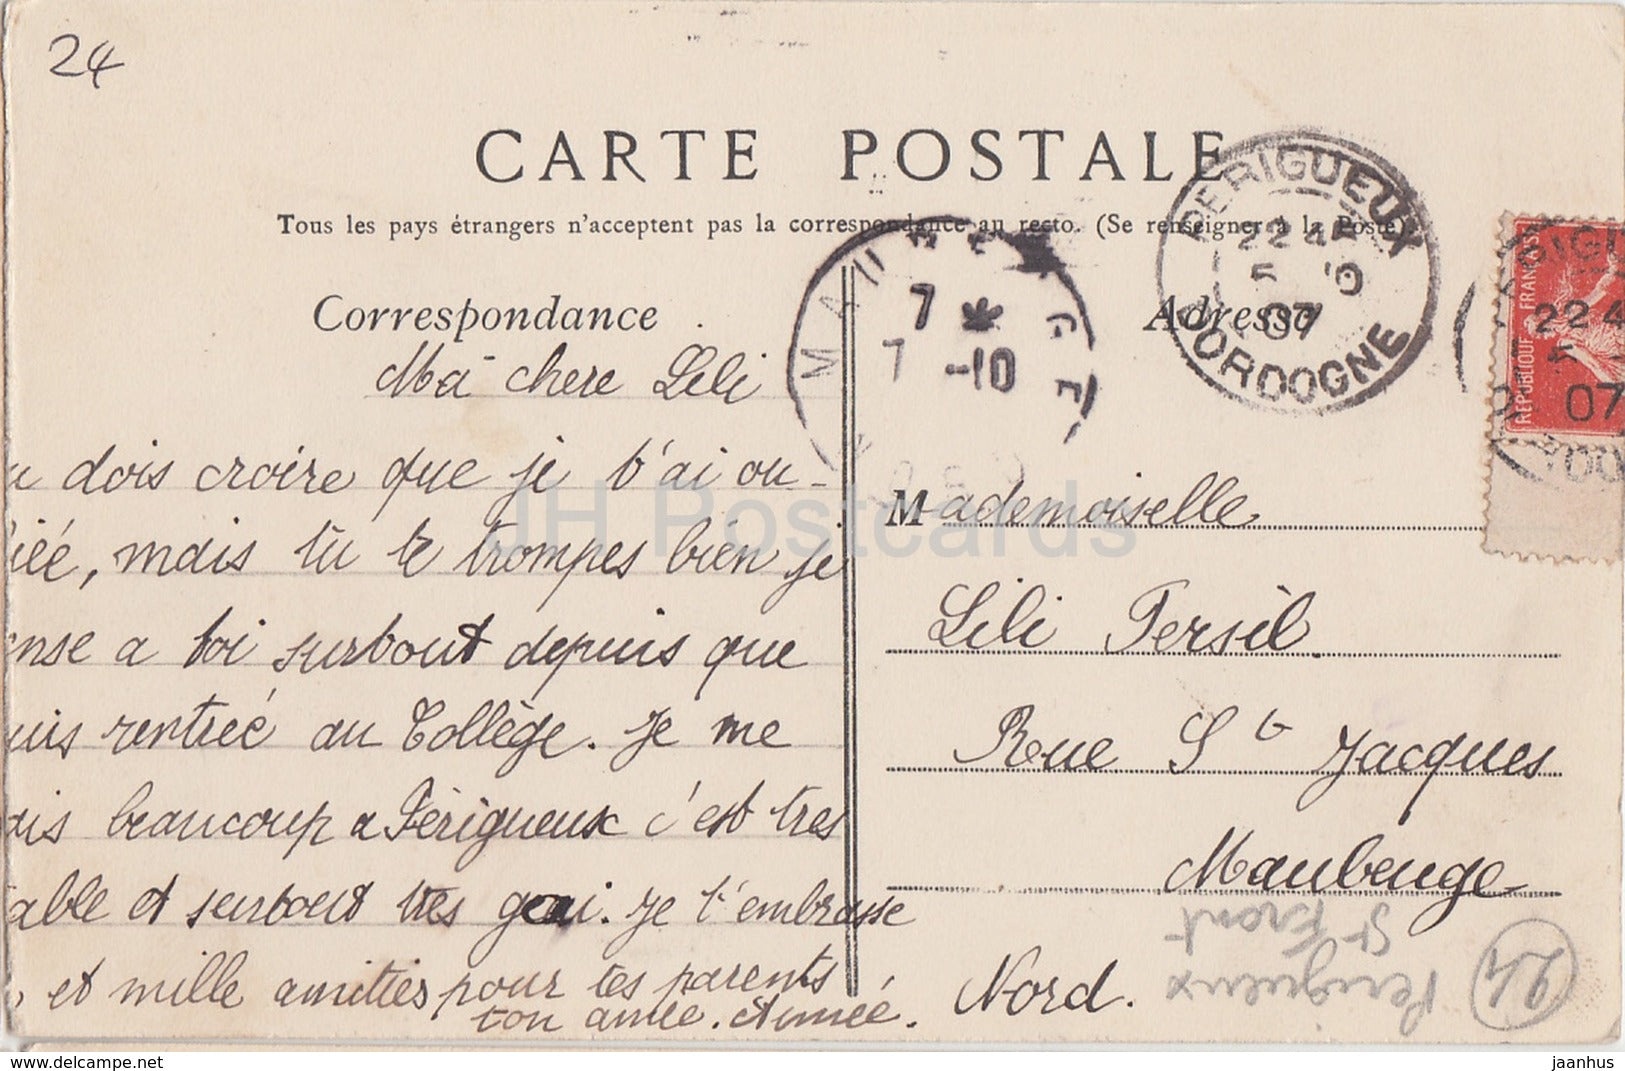 24
CARTE POSTALE
Tous les pays étrangers n'acceptent pas la correspondance au recto. (Se renseigner à la Poste).
PERIGUEUX
22
5
07
DORDOGNE
MAUBEUGE
7 *
7 -10
REPUBLIQUE FRANÇAISE
22
07
Correspondance
Adresse
Ma chere Lili
u dois croire que je t'ai ou-
liéé, mais tu te trompes bien je
ense a toi surtout depuis que
uis rentrée au Collège. Je me
ais beaucoup a Périgueux c'est tres
able et surtout tres gai. Je t'embrasse
, et mille amitiés pour tes parents
ton amie. Aimée.
Mademoiselle
Lili Persil.
Rue St Jacques
Maubeuge
Nord.
Perigueux
St Front
24
JH Postcards
www.delcampe.net
jaanhus